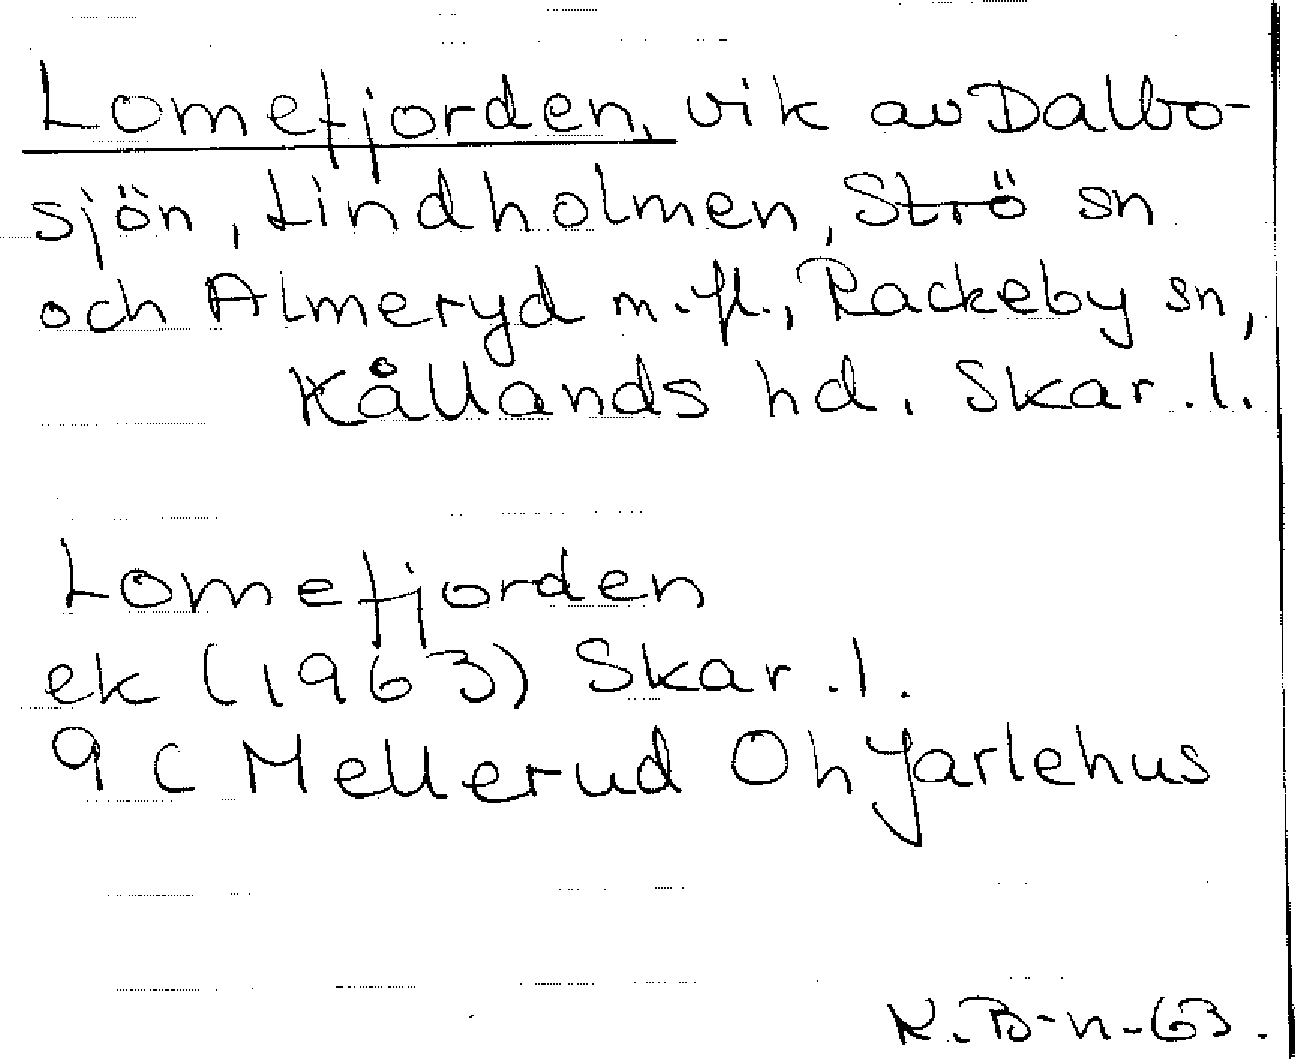 Lomefjorden, vik av Dalbo-
sjön, Lindholmen, Strö sn
och Almeryd m.fl., Rackeby sn,
Kållands hd. Skar.l.
Lomefjorden
ek (1963) Skar.l.
9 C Mellerud Oh Jarlehus
K.B-n-63.